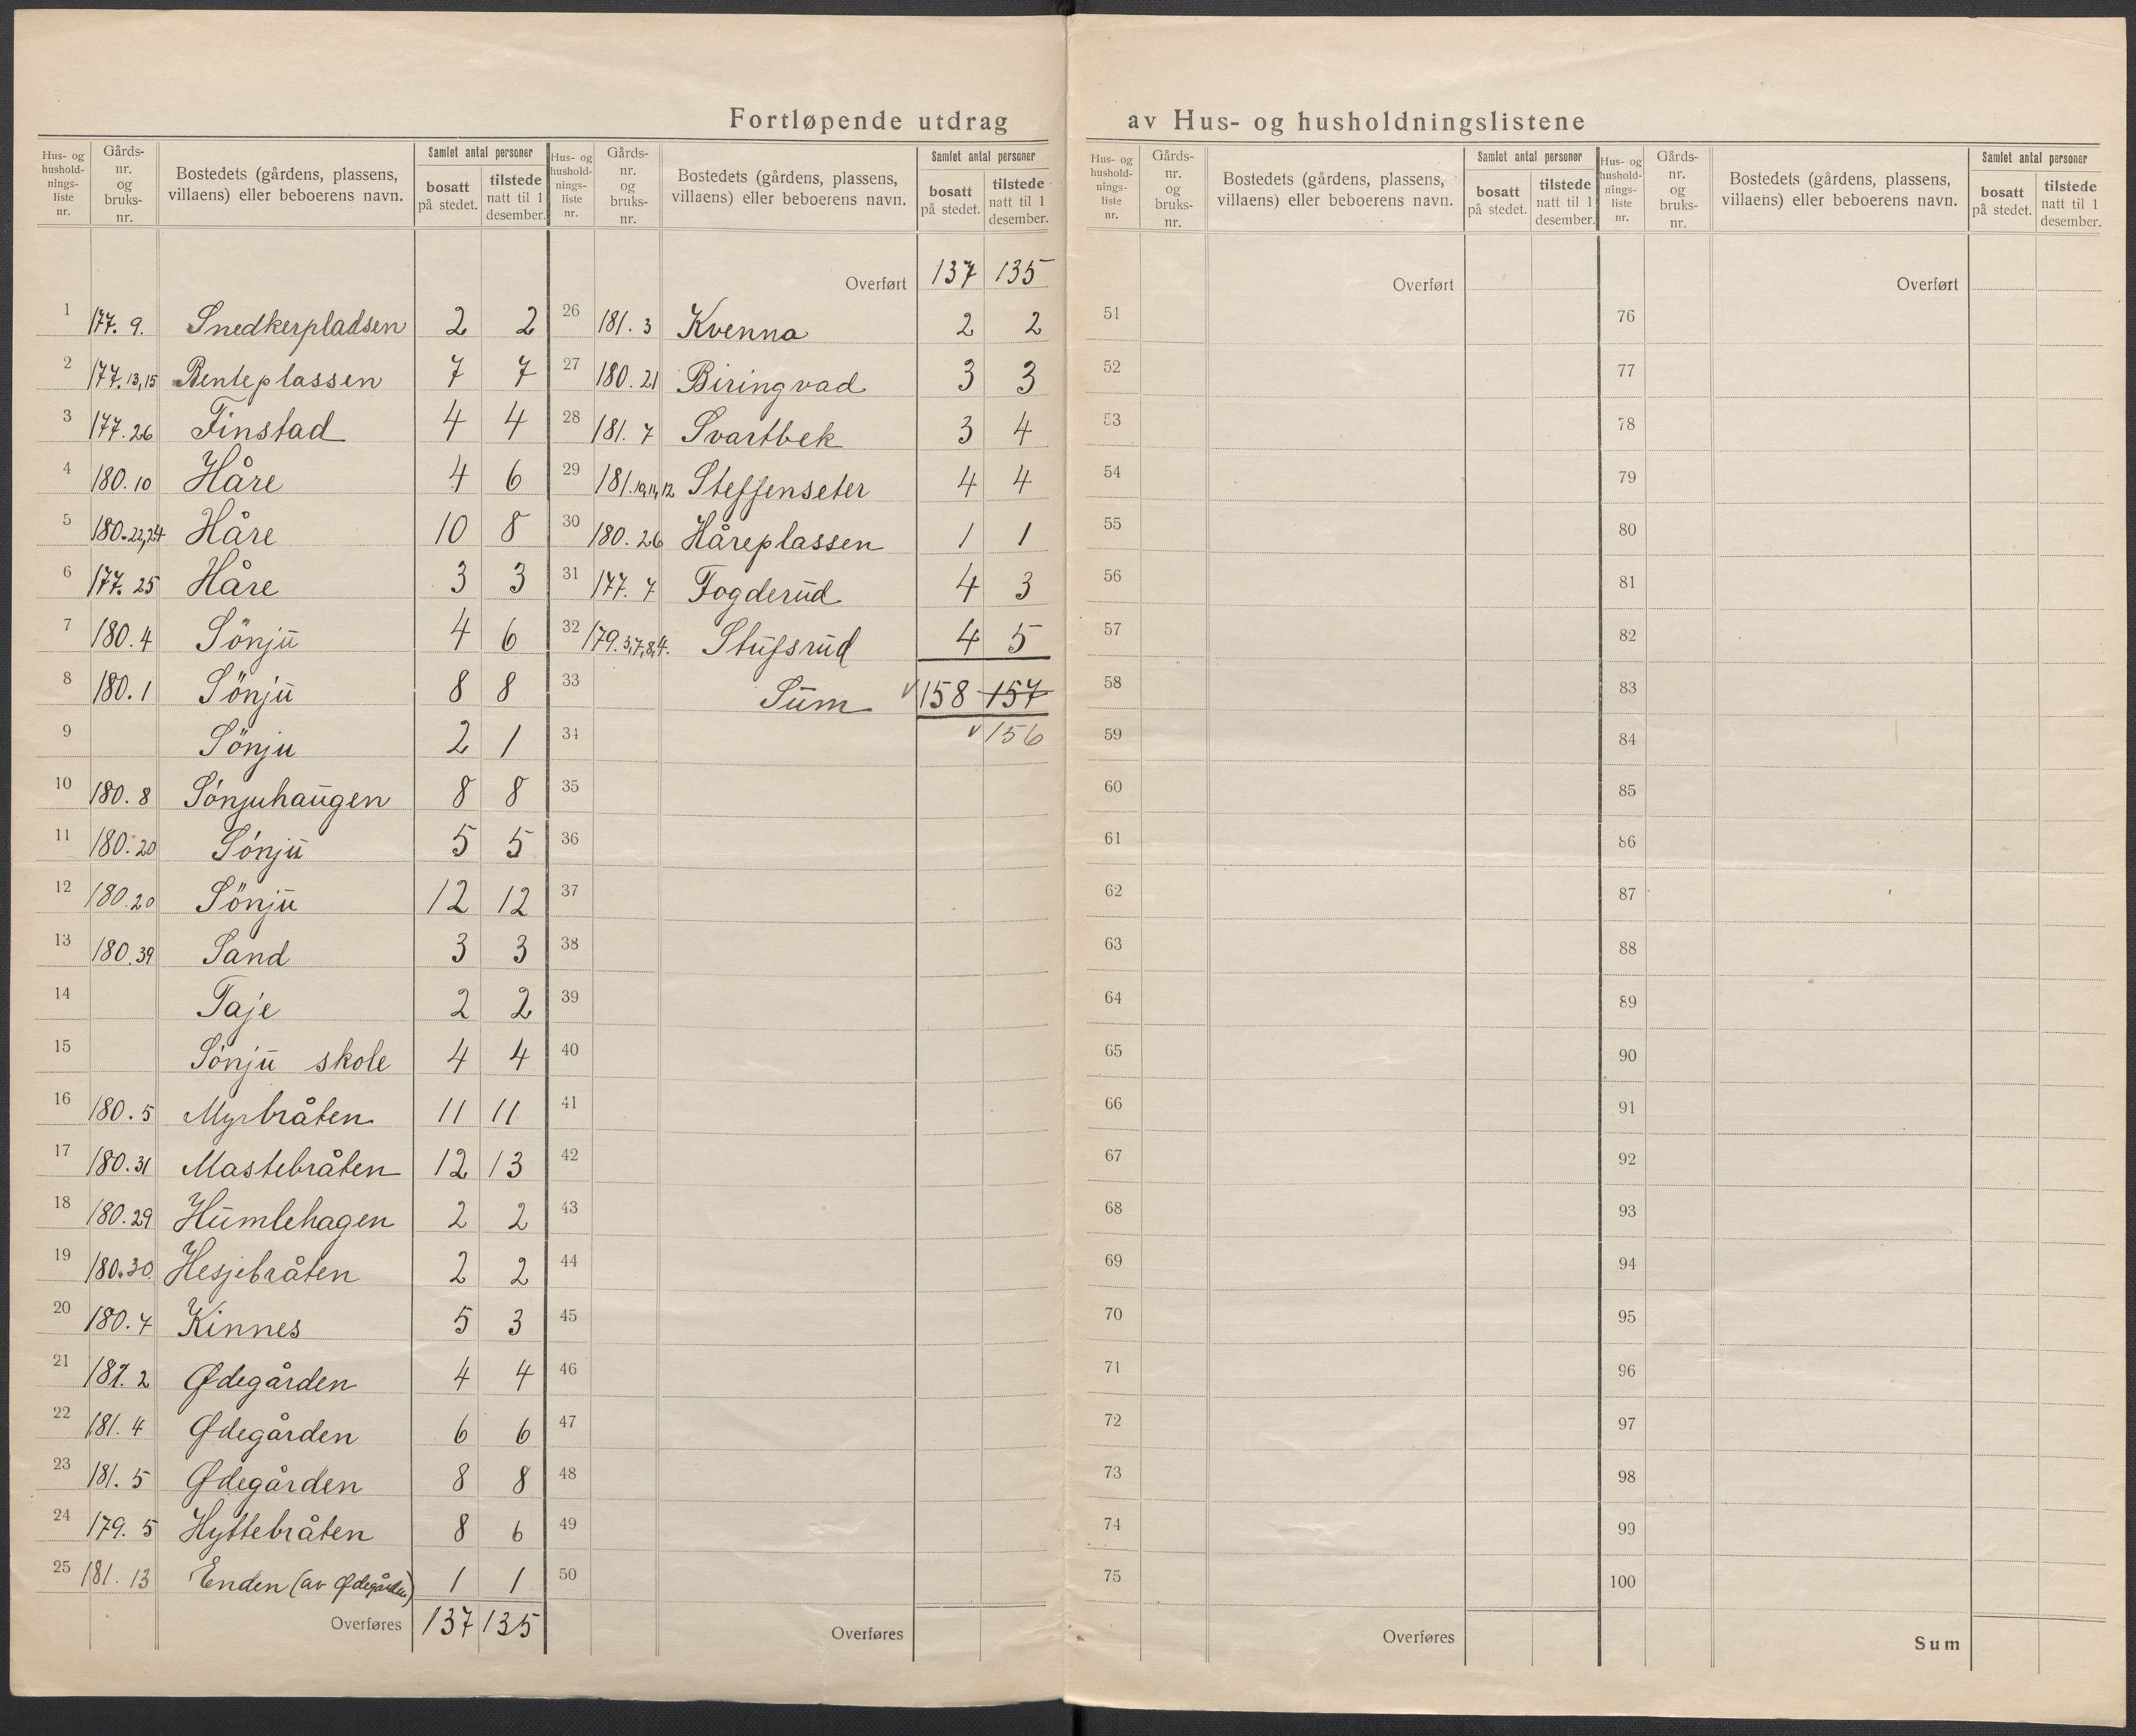 Fortløpende utdrag av Hus- og husholdningslistene
Hus- og hushold-nings-liste nr. Gårds-nr. og bruks-nr. Bostedets (gårdens, plassens, villaens) eller beboerens navn. Samlet antal personer bosatt på stedet. tilstede natt til 1 desember.
1 177. 9. Snedkerpladsen 2 2
2 177. 13,15 Benteplassen 7 7
3 177. 26 Finstad 4 4
4 180. 10 Håre 4 6
5 180. 22,24 Håre 10 8
6 177. 25 Håre 3 3
7 180. 4 Sönjŭ 4 6
8 180. 1 Sönjŭ 8 8
9 Sönju 2 1
10 180. 8 Sönjuhaŭgen 8 8
11 180. 20 Sönjŭ 5 5
12 180. 20 Sönjŭ 12 12
13 180. 39 Sand 3 3
14 Taje 2 2
15 Sönjŭ skole 4 4
16 180. 5 Myrbråten 11 11
17 180. 31 Mastebråten 12 13
18 180. 29 Hŭmlehagen 2 2
19 180. 30 Hesjebråten 2 2
20 180. 7 Kinnes 5 3
21 181. 2 Ødegården 4 4
22 181. 4 Ødegården 6 6
23 181. 5 Ødegården 8 8
24 179. 5 Hyttebråten 8 6
25 181. 13 Enden (av Ødegården) 1 1
Overføres 137 135
Hus- og hushold-nings-liste nr. Gårds-nr. og bruks-nr. Bostedets (gårdens, plassens, villaens) eller beboerens navn. Samlet antal personer bosatt på stedet. tilstede natt til 1 desember.
Overført 137 135
26 181. 3 Kvenna 2 2
27 180. 21 Biringvad 3 3
28 181. 7 Svartbek 3 4
29 181. 10,11,12 Steffenseter 4 4
30 180. 26 Håreplassen 1 1
31 177. 7 Fogderŭd 4 3
32 179. 3,7,8,4. Stŭfsrŭd 4 5
33 Sŭm 158 157
34 156
35
36
37
38
39
40
41
42
43
44
45
46
47
48
49
50
Overføres
Hus- og hushold-nings-liste nr. Gårds-nr. og bruks-nr. Bostedets (gårdens, plassens, villaens) eller beboerens navn. Samlet antal personer bosatt på stedet. tilstede natt til 1 desember.
Overført
51
52
53
54
55
56
57
58
59
60
61
62
63
64
65
66
67
68
69
70
71
72
73
74
75
Overføres
Hus- og hushold-nings-liste nr. Gårds-nr. og bruks-nr. Bostedets (gårdens, plassens, villaens) eller beboerens navn. Samlet antal personer bosatt på stedet. tilstede natt til 1 desember.
Overført
76
77
78
79
80
81
82
83
84
85
86
87
88
89
90
91
92
93
94
95
96
97
98
99
100
Sum